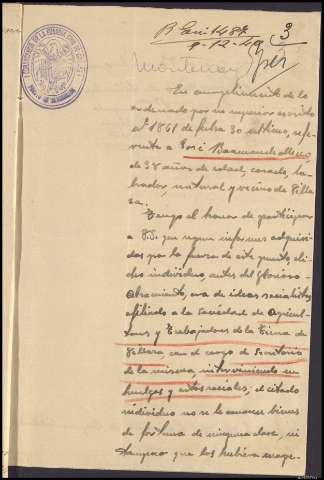 3
9-12-49
En cumplimiento de lo
ordenado por su superior escrito
nº 1861 de fecha 30 último, refe-
rente a José Baamonde
de 38 años de edad, casado, la-
brador, natural y vecino de Villa
Tengo el honor de participar
a V.S. que segun informes adquiri-
dos por la fuerza de este puesto, el ci-
individuo, antes del Glorioso
Alzamiento, era de ideas socialistas
afiliado a la sociedad de Agricul-
tores y Trabajadores de la Tierra de
con el cargo de Secretario
de la misma, interviniendo en
huelgas y actos sociales, el citado
individuo no se le conocen bienes
de fortuna de ninguna clase, ni
tampoco que los hubiera